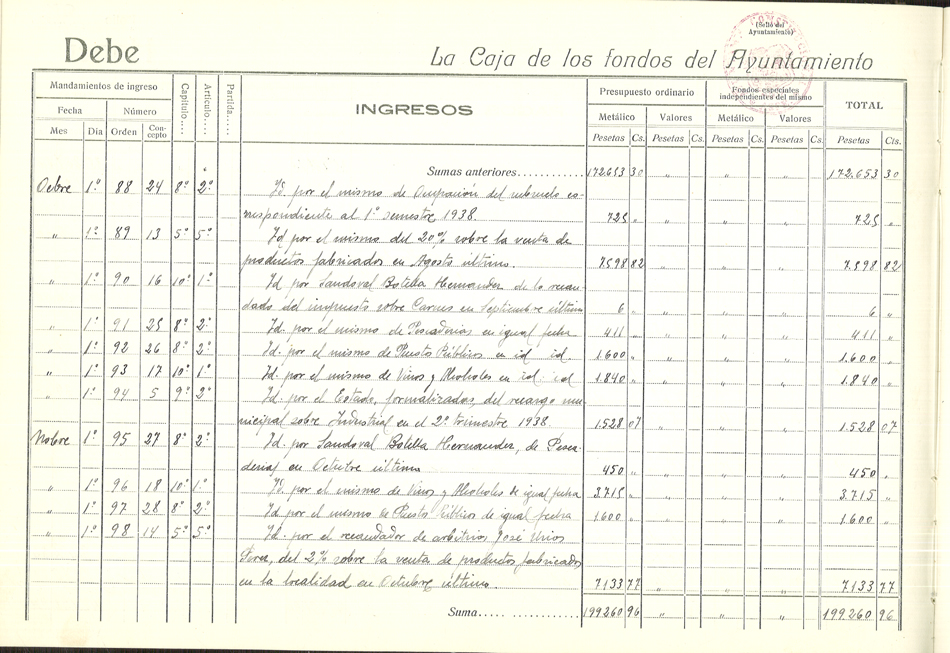 (Sello del
Ayuntamiento)
Debe
La Caja de los fondos del Ayuntamiento
Mandamientos de ingreso Capítulo.... Artículo..... Partida..... INGRESOS Presupuesto ordinario Fondos especiales independientes del mismo TOTAL
Fecha Número Metálico Valores Metálico Valores
Mes Día Orden Concepto Pesetas Cs. Pesetas Cs. Pesetas Cs. Pesetas Cs. Pesetas Cts.
Sumas anteriores............ 172.653 30 " " " 172.653 30
Octbre 1º 88 24 8º 2º Id. por el mismo de Ocupación del subsuelo co-
rrespondiente al 1º semestre 1938. 725 " " " " 725 "
" 1º 89 13 5º 5º Id. por el mismo del 20% sobre la venta de
productos fabricados en Agosto último. 7.598 82 " " " 7.598 82
" 1º 90 16 10º 1º Id. por Sandoval Botella Hernandez de lo recau-
dado del impuesto sobre Carnes en Septiembre último 6 " " " " 6 "
" 1º 91 25 8º 2º Id. por el mismo de Pescaderias en igual fecha 411 " " " " 411 "
" 1º 92 26 8º 2º Id. por el mismo de Puestos Públicos en id id 1.600 " " " " 1.600 "
" 1º 93 17 10º 1º Id. por el mismo de Vinos y Alcoholes en id. id 1.840 " " " " 1.840 "
" 1º 94 5 9º 2º Id. por el Estado, formalizadas, del recargo mu-
nicipal sobre Industrial en el 2º trimestre 1938. 1.528 07 " " " 1.528 07
Nobre 1º 95 27 8º 2º Id. por Sandoval Botella Hernandez, de Pesca-
derias en Octubre último 450 " " " " 450 "
" 1º 96 18 10º 1º Id. por el mismo de Vinos y Alcoholes de igual fecha 3.715 " " " " 3.715 "
" 1º 97 28 8º 2º Id. por el mismo de Puestos Públicos de igual fecha 1.600 " " " " 1.600 "
" 1º 98 14 5º 5º Id. por el recaudador de arbitrios José
del 2% sobre la venta de productos fabricados
en la localidad en Octubre último. 7.133 77 " " " 7.133 77
Suma..... ............ 199.260 96 " " " 199.260 96